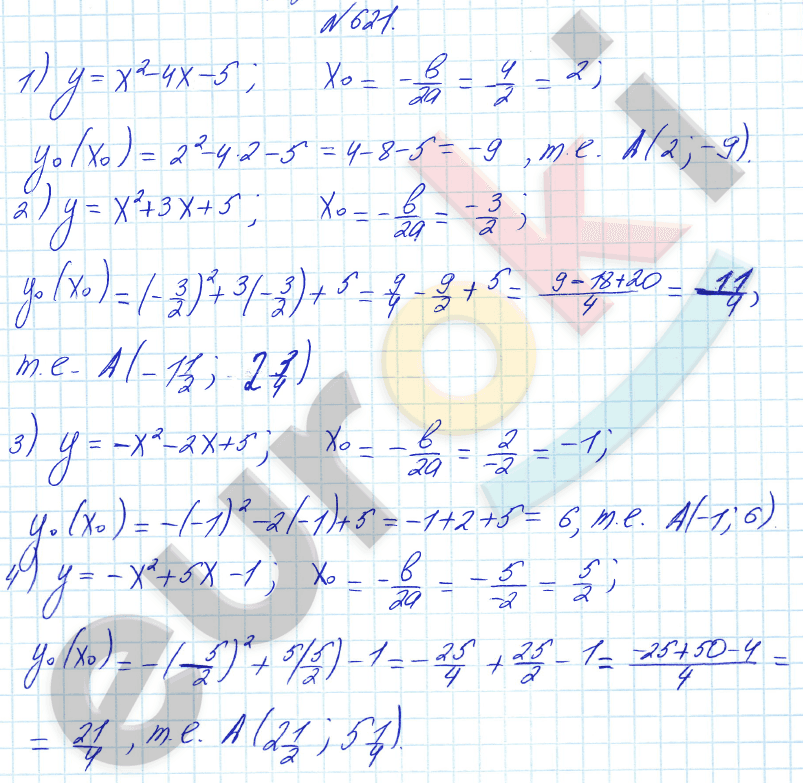 №621.
1) y = x² - 4x - 5; x₀ = -в/2а = 4/2 = 2;
y₀(x₀) = 2² - 4·2 - 5 = 4 - 8 - 5 = -9, т.е. А(2; -9).
2) y = x² + 3x + 5; x₀ = -в/2а = -3/2;
y₀(x₀) = (-3/2)² + 3(-3/2) + 5 = 9/4 - 9/2 + 5 = 9-18+20/4 = 11/4,
т.е. А(-1 1/2; 2 3/4)
3) y = -x² - 2x + 5; x₀ = -в/2а = 2/-2 = -1;
y₀(x₀) = -(-1)² - 2(-1) + 5 = -1 + 2 + 5 = 6, т.е. А(-1; 6).
4) y = -x² + 5x - 1; x₀ = -в/2а = -5/-2 = 5/2;
y₀(x₀) = -(-5/2)² + 5(5/2) - 1 = -25/4 + 25/2 - 1 = -25+50-4/4 =
= 21/4, т.е. А(2 1/2; 5 1/4).
euroki